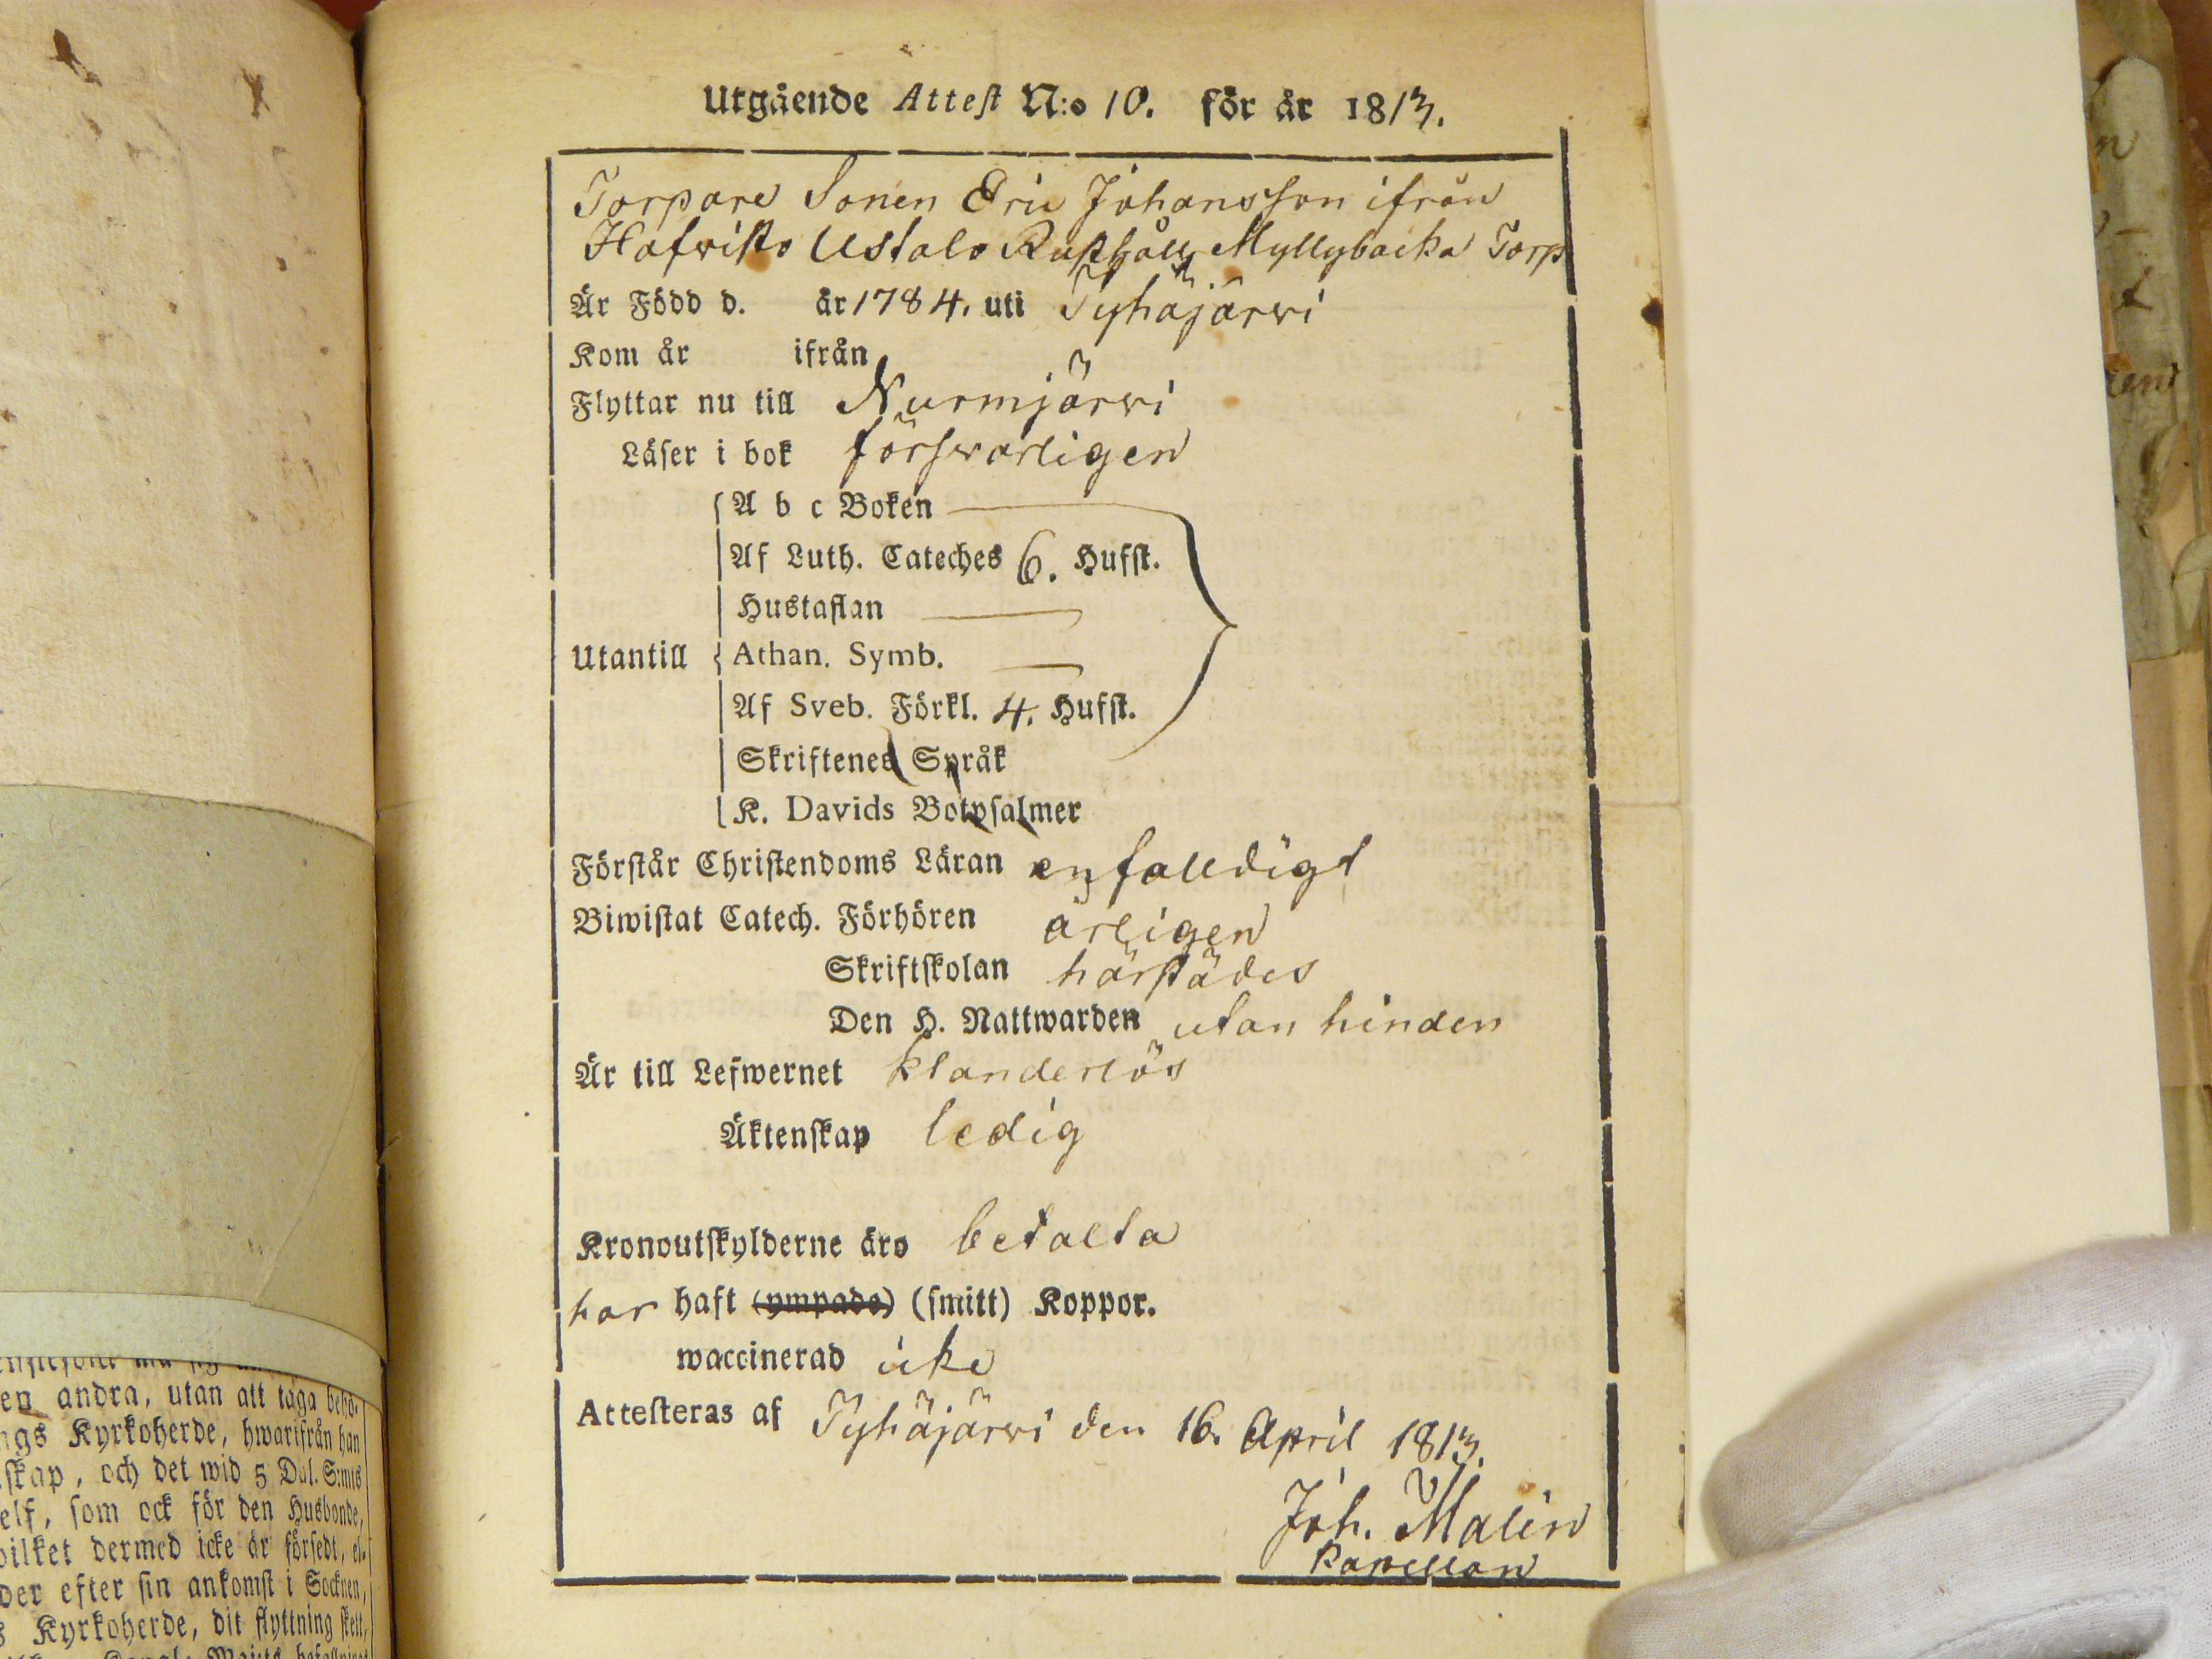 Utgående Attest N:o 10. för år 1813.
Torpare Sonen Eric Johansson ifrån
Hafvisto Ustalo Rusthåll Myllybacka Torp
Är Född d. år 1784. uti Pyhäjärvi
Kom år ifrån
Flyttar nu till Nurmjärvi
Läser i bok försvarligen
A b c Boken
Af Luth. Cateches 6. Hufst.
Hustaflan
Utantill Athan. Symb.
Af Sveb. Förkl. 4. Hufst.
Skriftenes Språk
K. Davids Botpsalmer
Förstår Christendoms Läran enfalldigt
Biwistat Catech. Förhören årligen
Skriftskolan härstädes
Den H. Nattwarden utan hinder
Är till Lefwernet klanderlös
Äktenskap ledig
Kronoutskylderne äro betalta
har haft (ympade) (smitt) Koppor.
waccinerad icke
Attesteras af Pyhäjärvi den 16. April 1813.
Joh. Malin
Kapellan
en andra, utan att taga behö-
gs Kyrkoherde, hwarifrån han
skap, och det wid 5 Dal. S:mts
elf, som ock för den Husbonde,
hwilket dermed icke är försedt, el-
der efter sin ankomst i Socknen,
s Kyrkoherde, dit flyttning skett,